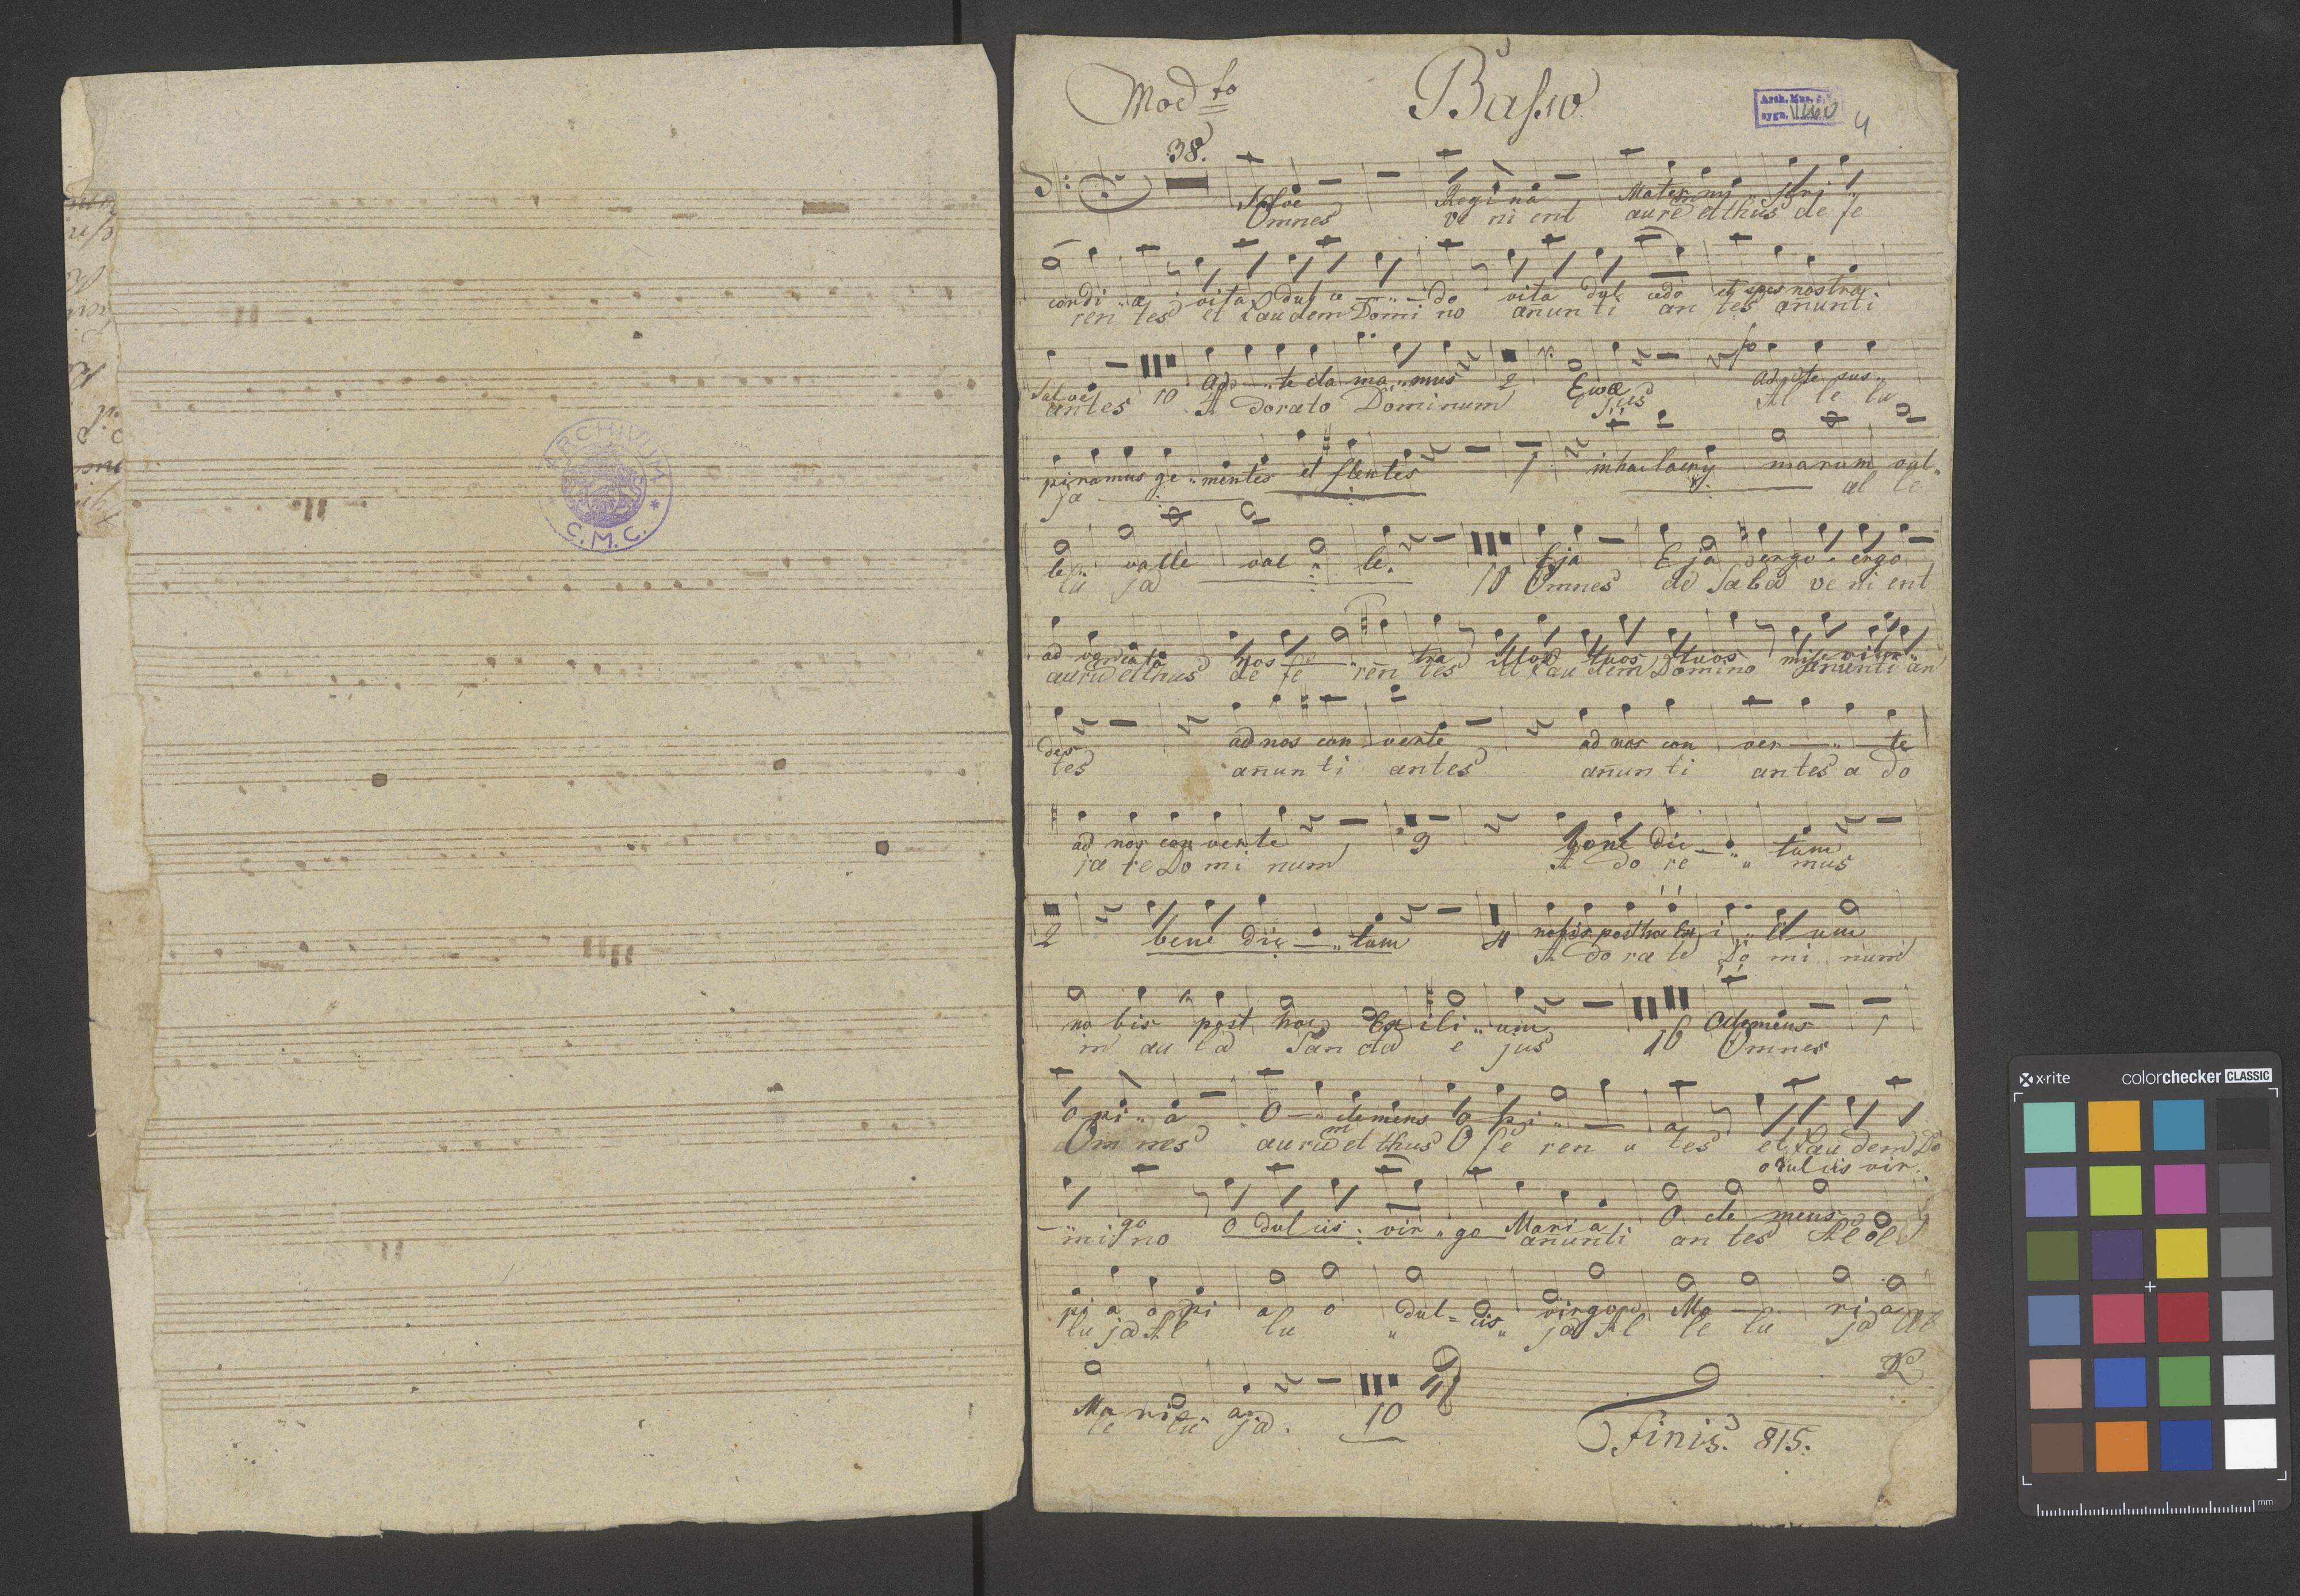 ARCHIVUM
* C. M. C. *
Modto Basso
Arch. Mus.
sygn. 4
38.
Salve Regina Mater mi seri
Omnes ve ni ent aure et thus de fe
cordi æ vita dul ce do vita dul cedo et spes nostra
ren tes et Laudem Domi no añun ti an tes añunti
Salve 10 Ad te cla ma mus 2 Evæ ad te sus
antes A dorate Dominum e jus Al le lu
piramus ge mentes et flentes 1 in hac lacry marum val
ja al le
le valle val le. 10 Eja Eja ergo ergo
lu ja Omnes de Saba ve ni ent
ad vocata nos tra illos tuos tuos
aurum et thus de fe ren tes et Lau dem Domino añunti an
des ad nos con verte ad nos con ver te
tes añun ti antes añun ti antes a do
ad nos con verte 3 bene dic tum
ra te Do mi num A do re mus
2 bene dic tum 4 nobis post hoc Ex i li um
A do ra te Do mi num
no bis post hoc Ex ili um 16 O clemens 1
in au la San cta e jus Omnes
O pi a O clemens O pi a
Om nes aurum et thus O fe ren tes et Lau dem Do
o dulcis vir
go O dul cis vir go Maria O cle mens
mi no añunti an tes Al
pi a o pi a o dul cis virgo Ma ri a
lu ja Al lu ja Al le lu ja Al
Ma ri a 10
le lu ja.
Finis. 815.
x-rite colorchecker CLASSIC
mm